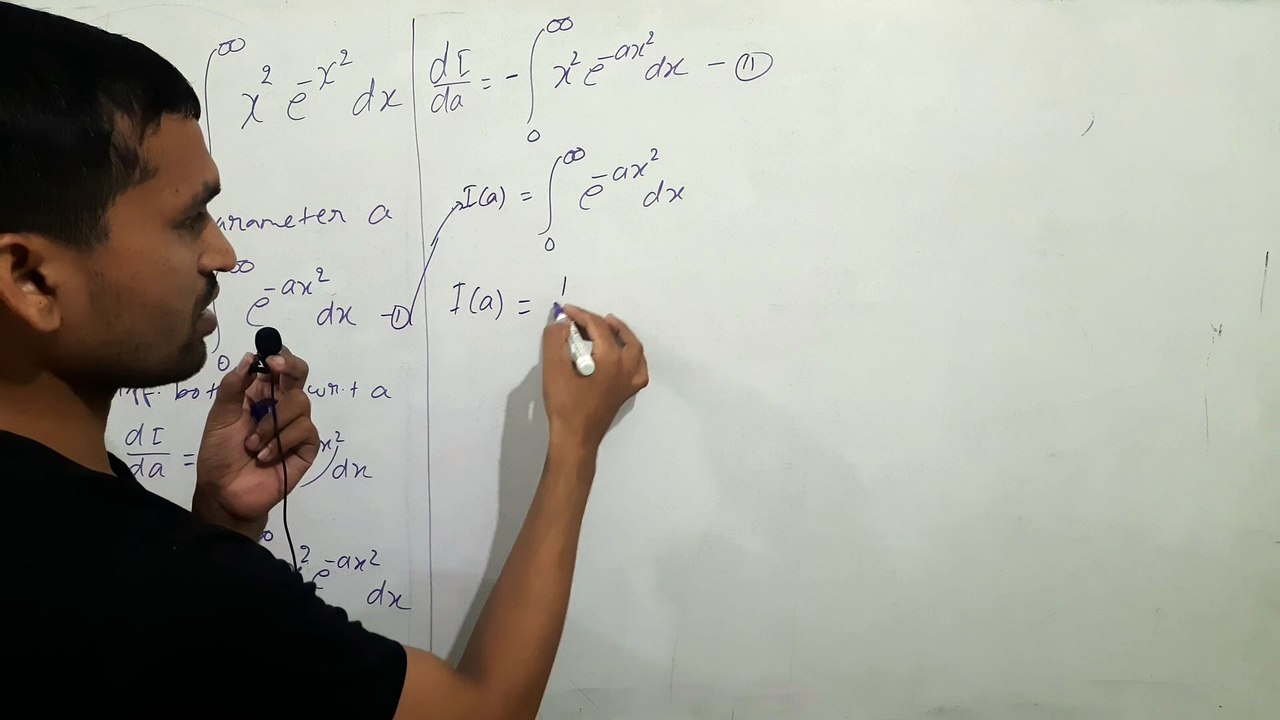 ∫ x² e^{-x²} dx
arameter a
∫₀^∞ e^{-ax²} dx - ①
diff. bot w.r.t a
dI/da = x² ) dx
∞ ² e^{-ax²} dx
dI/da = - ∫₀^∞ x² e^{-ax²} dx - ⑪
I(a) = ∫₀^∞ e^{-ax²} dx
I(a) = 1